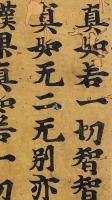 真如若一切智智
真如无二无别亦
僕果真如若一